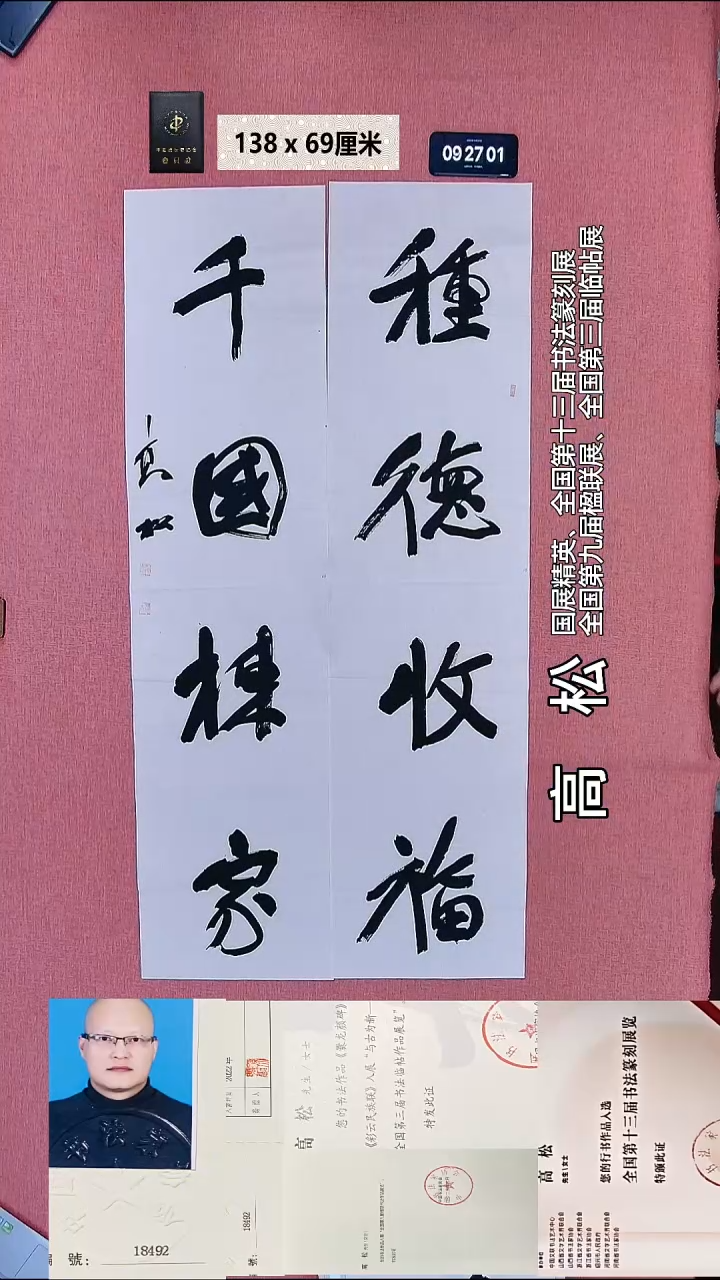 138 x 69厘米
09 27 01
種德收福
千國棟家
高松
国展精英、全国第十三届书法篆刻展
全国第九届楹联展、全国第三届临帖展
高 松
2022 年
號：18492
18492
高 松 先生／女士
全国第三届书法临帖作品展览"
特发此证
高 松
先生\女士
您的行书作品入选
全国第十三届书法篆刻展览
特颁此证